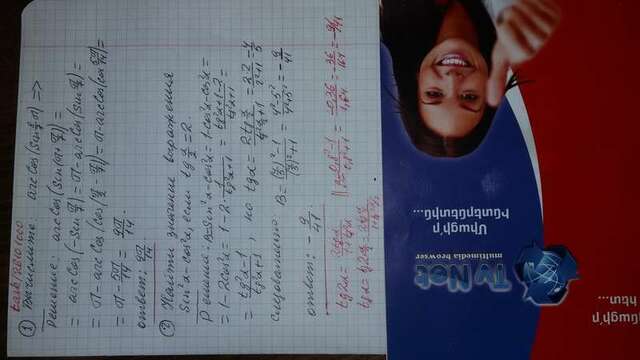 task/26101000
① Вычислите: arcCos(Sin 8/7 π) =>
Решение: arcCos(Sin(π + π/7)) =
= arcCos(-Sin π/7) = π - arcCos(Sin π/7) =
= π - arcCos(Cos(π/2 - π/7)) = π - arcCos(cos 5π/14) =
= π - 5π/14 = 9π/14.
ответ: 9π/14.
② Найти значение выражения
Sin²α - cos²α, если tg α/2 = 2.
Решение: B = Sin²α - cos²α = 1 - cos²α - cos²α =
= 1 - 2cos²α = 1 - 2 · 1/(tg²α+1) = (tg²α+1-2)/(tg²α+1) =
= (tg²α-1)/(tg²α+1), но tgα =
Следовательно B =
= (4²-5²)/(4²+5²) = -9/41
ответ: -9/41.
tg2α =
tgα = tg2·α/2 =
= (0,8²-1)/(0,8²+1) = -0,36/1,64 = -36/164 = -9/41
Tv Net
multimedia browser
Միացի՛ր
ինտերնետին...
Միացի՛ր
հետ...